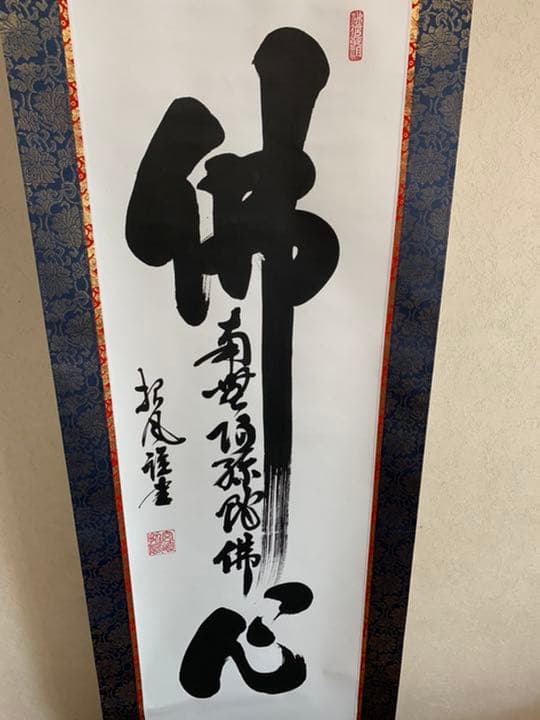 佛心
南無阿彌陀佛
松風謹書